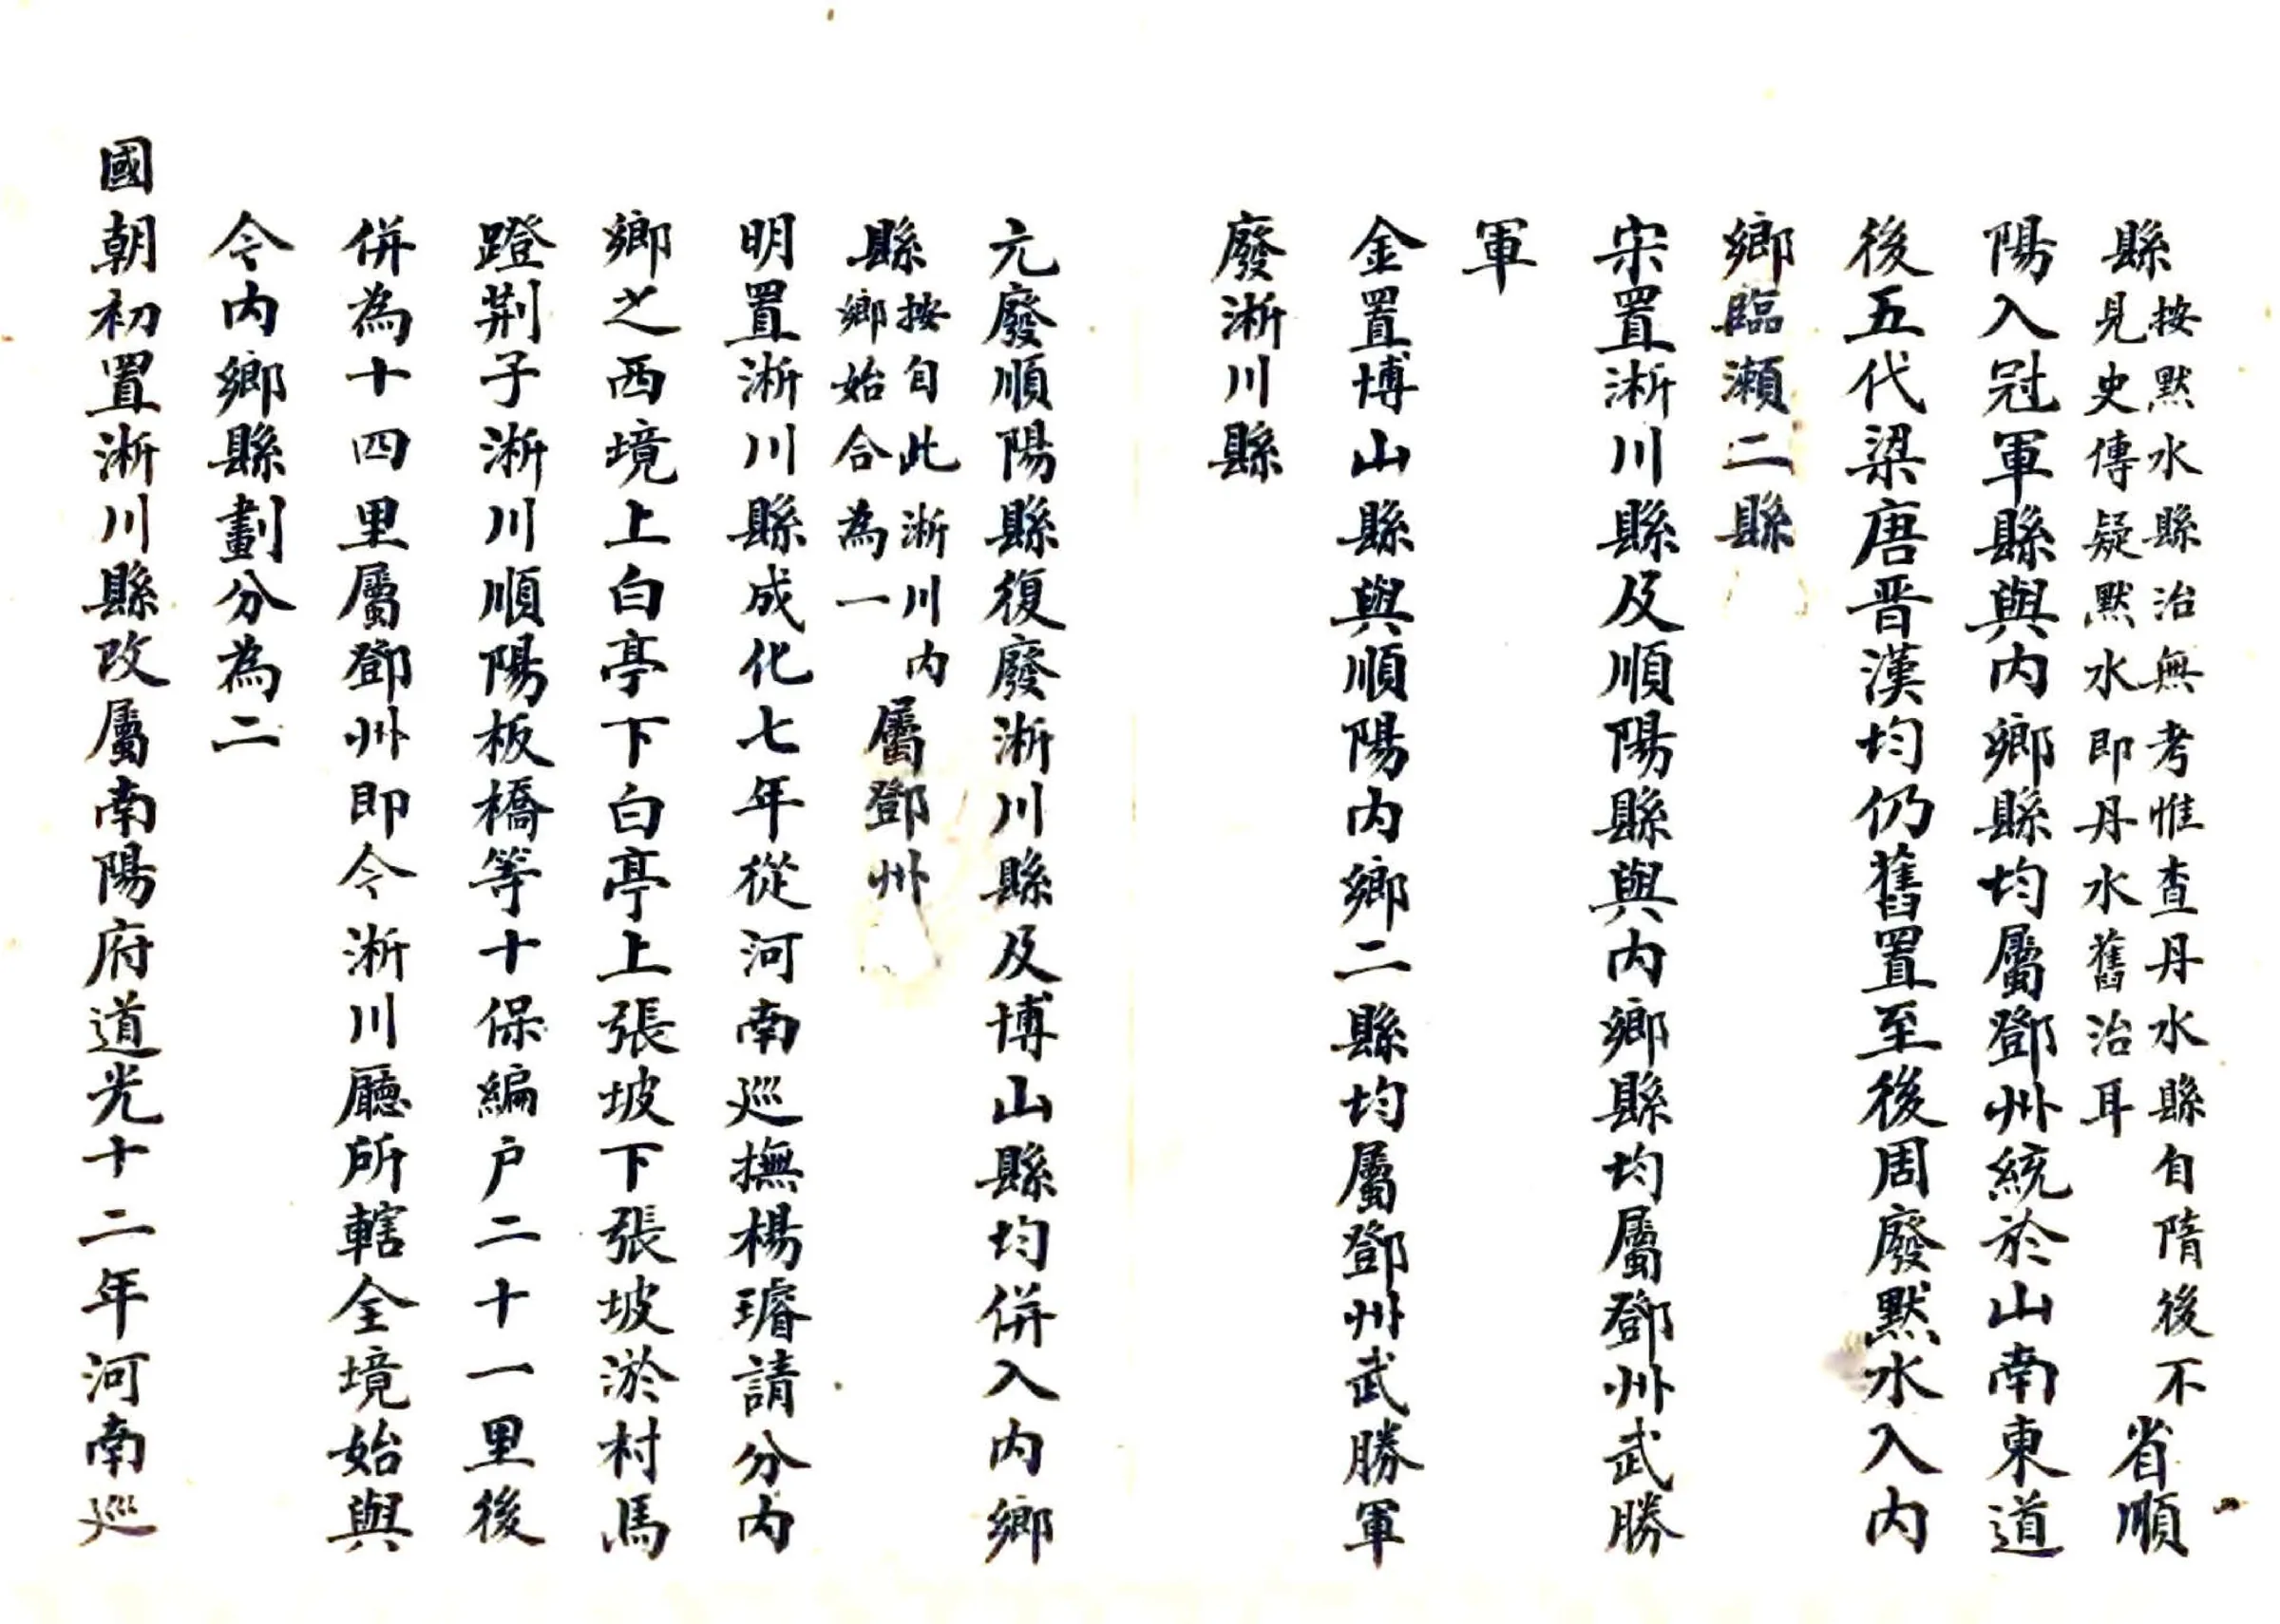 縣按默水縣治無考惟查丹水縣自隋後不見史傳疑默水即丹水舊治耳省順
陽入冠軍縣與内鄉縣均屬鄧州統於山南東道
後五代梁唐晋漢均仍舊置至後周廢默水入内
鄉臨瀨二縣
宋置淅川縣及順陽縣與内鄉縣均屬鄧州武勝
軍
金置博山縣與順陽内鄉二縣均屬鄧州武勝軍
廢淅川縣
元廢順陽縣復廢淅川縣及博山縣均併入内鄉
縣按自此淅川内鄉始合為一屬鄧州
明置淅川縣成化七年從河南巡撫楊璿請分内
鄉之西境上白亭下白亭上張坡下張坡淤村馬
蹬荆子淅川順陽板橋等十保編户二十一里後
併為十四里屬鄧州即今淅川廳所轄全境始與
今内鄉縣劃分為二
國朝初置淅川縣改屬南陽府道光十二年河南巡